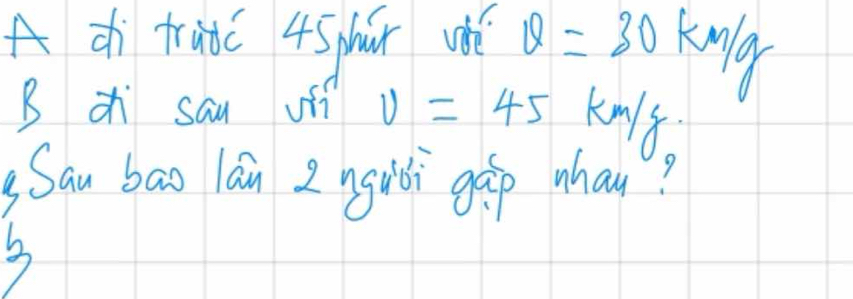 A đi trước 45phút với v = 30 km/g
B đi sau với v = 45 km/g.
a, Sau bao lâu 2 người gặp nhau?
b,